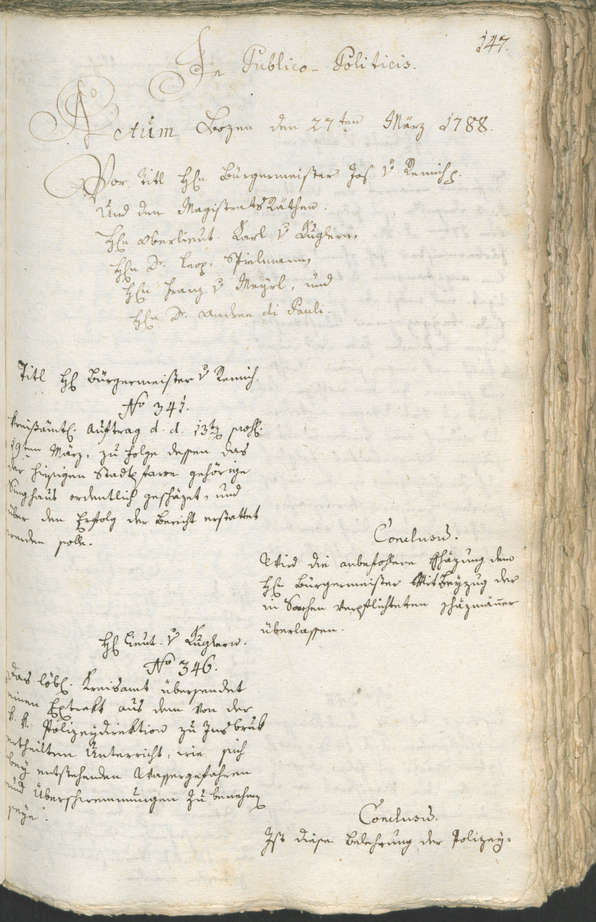 147.
In Publico-Politicis.
Actum Bozen den 27ten März 1788.
Vor Titl Hℓ Bürgermeister Jos. v Remich p.
Und den Magistrats Räthen:
Hℓn Oberlieut Karl v Kuglern,
Hℓn Dr. Leop. Spielmann,
Hℓn Franz v Mayrl, und
Hℓn Dr. Andree di Pauli.
Titl Hℓ Bürgermeister v Remich.
No 341.
Kreisämtl. Auftrag d. d. 13ten
19ten März, zu Folge dessen das
der hiesigen Stadtpfarre gehörige
Singhaus ordentlich geschäzet, und
über den Erfolg der Bericht erstattet
werden solle.
Conclusum.
Wird die anbefohlene Schäzung dem
Hℓn Bürgermeister Mit Beyzug der
in Sachen verpflichteten Schäzmänner
überlassen.
Hℓ Lieut. v Kuglern.
No 346.
Das löbl. Kreisamt übersendet
einen Extrakt aus dem von der
k. k. Polizeydirektion zu Insbruk
ertheilten Unterricht, wie sich
bey entstehenden Wassergefahren
und Überschwemmungen zu benehmen
seye.
Conclusum.
Ist diese Belehrung der Polizey-